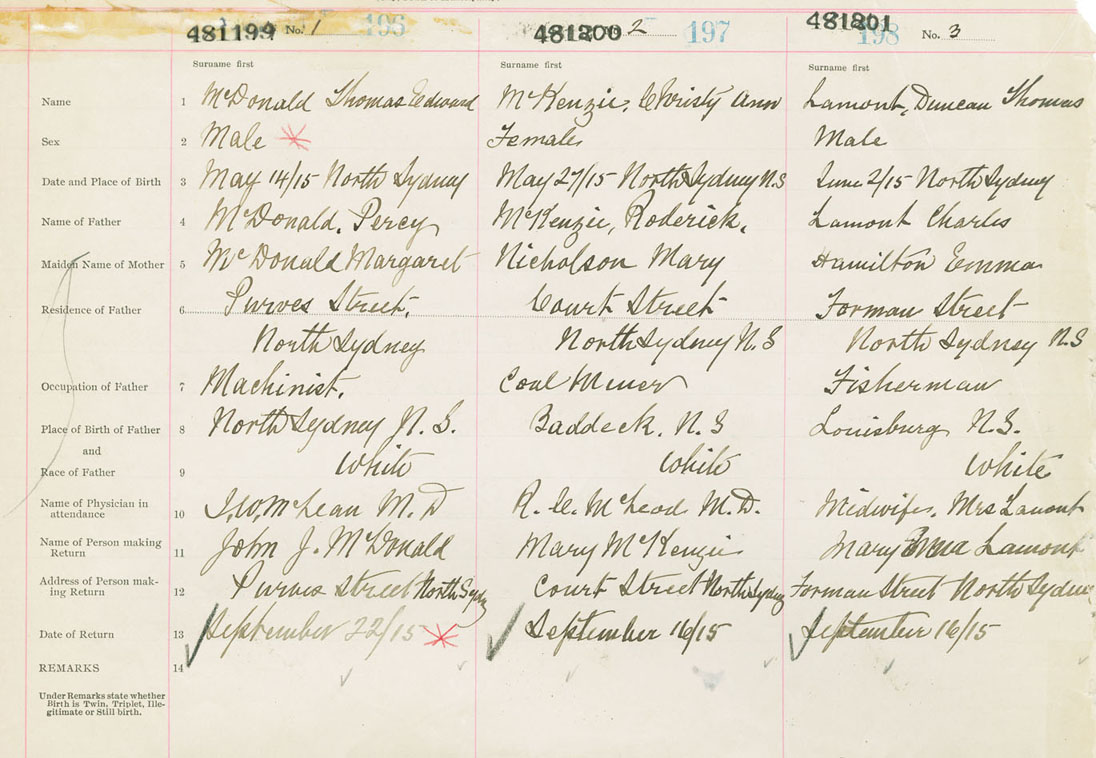 481199 No. 1 196 481200 2 197 481201 198 No. 3
Surname first Surname first Surname first
Name 1 McDonald Thomas Edward McKenzie, Christy Ann Lamont, Duncan Thomas
Sex 2 Male Female Male
Date and Place of Birth 3 May 14/15 North Sydney May 27/15 North Sydney N.S June 2/15 North Sydney
Name of Father 4 McDonald, Percy McKenzie, Roderick, Lamont Charles
Maiden Name of Mother 5 McDonald Margaret Nicholson Mary Hamilton Emma
Residence of Father 6 Purves Street, Court Street Forman Street
North Sydney North Sydney N.S North Sydney N.S
Occupation of Father 7 Machinist. Coal Miner Fisherman
Place of Birth of Father 8 North Sydney N.S. Baddeck. N.S Louisburg N.S.
and
Race of Father 9 White White White
Name of Physician in
attendance 10 McLean M.D R. McLeod M.D. Midwife, Mrs Lamont
Name of Person making
Return 11 John J. McDonald Mary McKenzie Mary Emma Lamont
Address of Person mak-
ing Return 12 Purves Street North Sydney Court Street North Sydney Forman Street North Sydney
Date of Return 13 September 22/15 September 16/15 September 16/15
REMARKS 14
Under Remarks state whether
Birth is Twin, Triplet, Ille-
gitimate or Still birth.